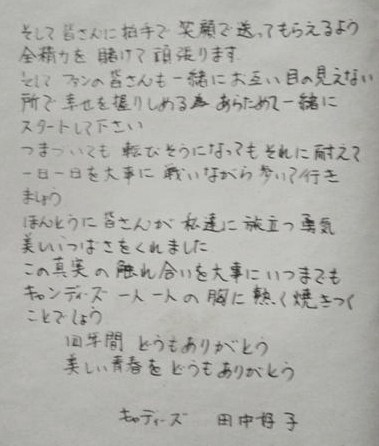 そして皆さんに拍手で 笑顔で送ってもらえるよう
全精力を 賭けて 頑張ります
そして ファンの皆さんも一緒に お互い目の見えない
所で 幸せを握りしめる為 あらためて一緒に
スタートして下さい
つまづいても 転びそうになっても それに耐えて
一日一日を大事に 戦いながら 歩いて行き
ましょう
ほんとうに皆さんが 私達に 旅立つ勇気
美しいつばさをくれました
この真実の 触れ合いを大事に いつまでも
キャンディーズ 一人一人の胸に 熱く焼きつく
ことでしょう
四年間 どうもありがとう
美しい青春を どうもありがとう
キャンディーズ 田中好子